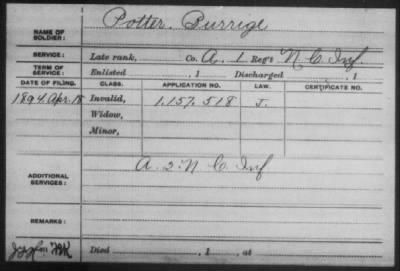 NAME OF SOLDIER: Potter, Burrige
SERVICE: Late rank, Co. A, 1 Reg't N. C. Inf
TERM OF SERVICE: Enlisted , 1 Discharged , 1
DATE OF FILING. CLASS. APPLICATION NO. LAW. CERTIFICATE NO.
1894. Apr. 18 Invalid, 1.157.518 J.
Widow,
Minor,
ADDITIONAL SERVICES: A. 2. N. C. Inf
REMARKS:
Died , 1 , at